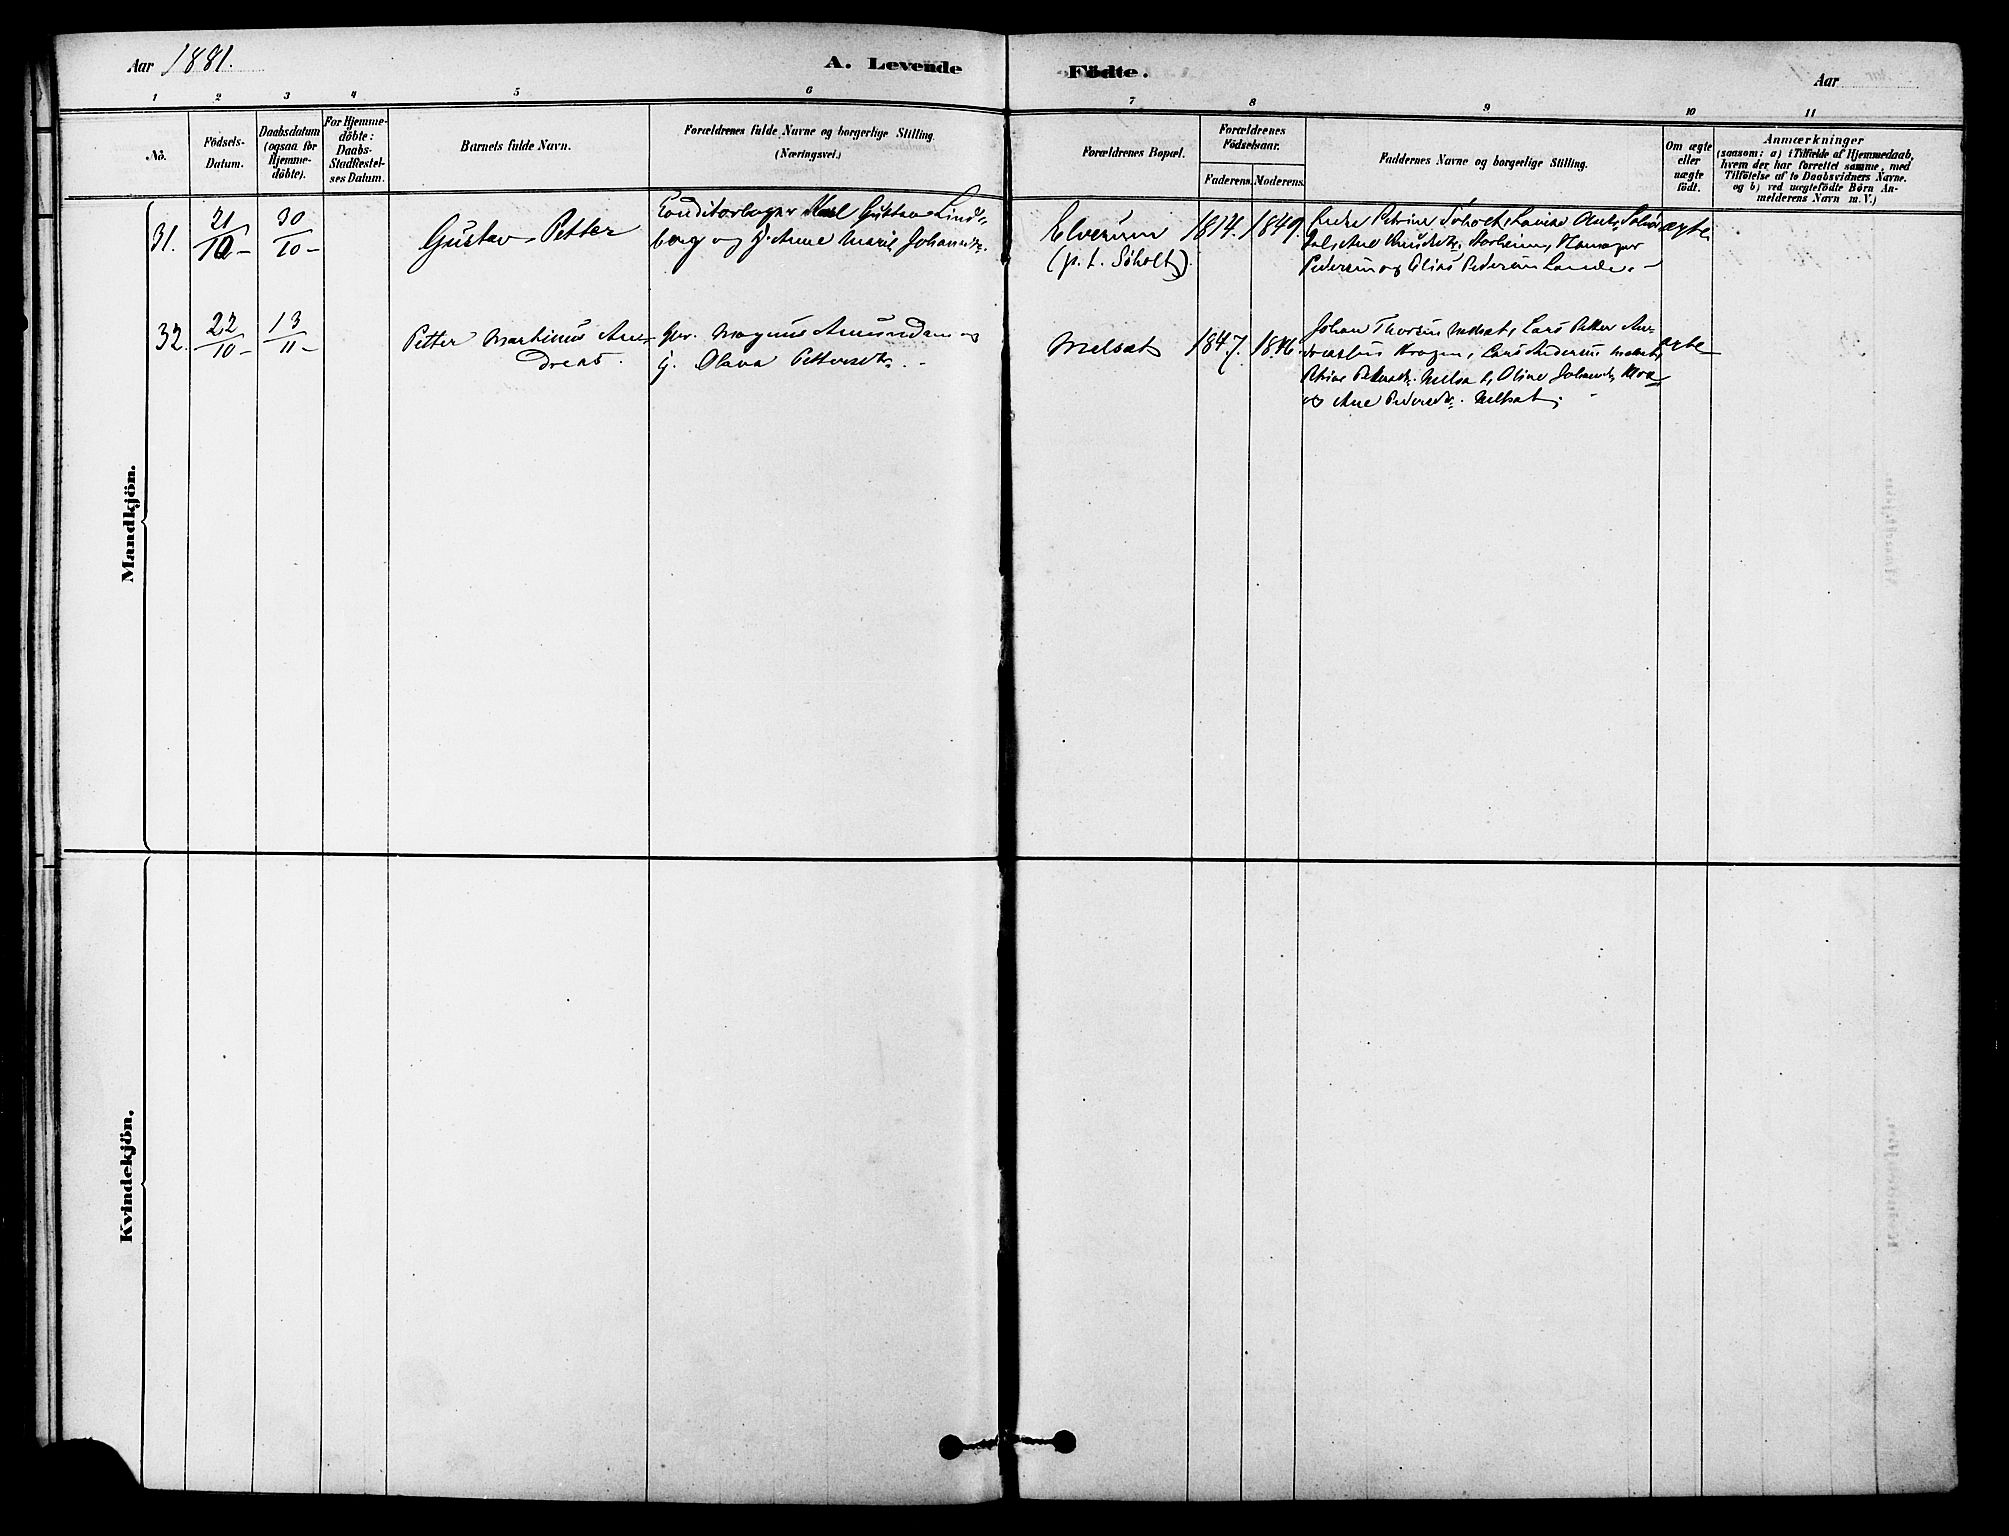 Aar 1881.
A. Levende Födte.
Aar
1 2 3 4 5 6 7 8 9 10 11
No.
Födsels-
Datum.
Daabsdatum
(ogsaa for
Hjemme-
döbte).
For Hjemme-
döbte:
Daabs-
Stadfæstel-
ses Datum.
Barnets fulde Navn.
Forældrenes fulde Navne og borgerlige Stilling.
(Næringsvei.)
Forældrenes Bopæl.
Forældrenes
Födselsaar.
Faderens. Moderens.
Faddernes Navne og borgerlige Stilling.
Om ægte
eller
uægte
födt.
Anmærkninger
(saasom: a) i Tilfælde af Hjemmedaab,
hvem der har forrettet samme, med
Tilföielse af to Daabsvidners Navne.
og b) ved uægtefödte Börn An-
melderens Navn m. V.)
Mandkjön.
31.
21/10-
30/10-
Gustav Petter
Karl Gustav Lind-
borg og H. Anne Marie Johannsd.
Elverum
(p. t. Söholt).
1849.
Petrine Söholt, Lovise
Pedersen og Elias Pedersen Lande.-
ægte
32.
22/10-
13/11-
Petter Martinus An-
dreas.
Magnus Amundsen og
H. Olava Pettersd. -
Melsæt
1847. 1846.
Johan Melsæt, Lars Petter An-
Lars Andersen Melsæt,
Petrine Melsæt, Oline
og Ane Pedersd. Melsæt.
ægte
Kvindekjön.